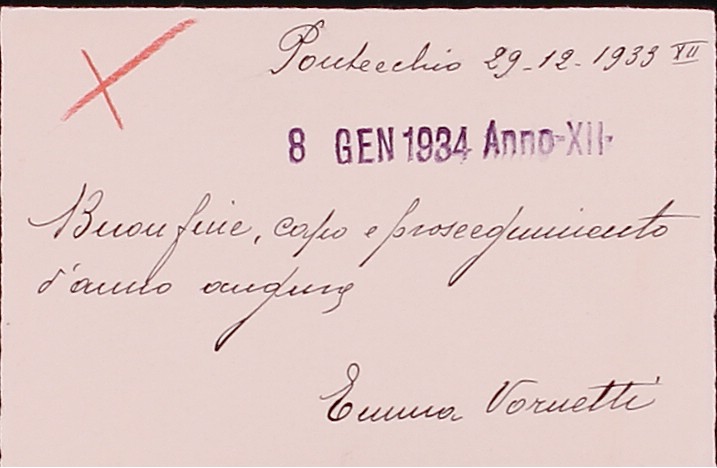 Pontecchio 29-12-1933 XII
8 GEN 1934 Anno XII
Buon fine, capo e proseguimento
d'anno
Emma Vornetti